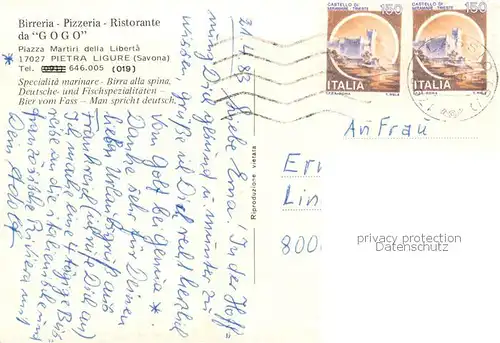 Birreria - Pizzeria - Ristorante
da "GOGO"
Piazza Martiri della Libertà
17027 PIETRA LIGURE (Savona)
Tel. 646.005 (019)
Specialità marinare - Birra alla spina,
Deutsche- und Fischspezialitäten -
Bier vom Fass - Man spricht deutsch.
*
21.4.83 Liebe Erna! In der Hoff-
nung Dich gesund u. munter zu
wissen grüße ich Dich recht herzlich
vom Golf bei Genua *.
Danke sehr für Deinen
lieben Urlaubsgruß aus
Frankreich (ich ruf Dich an)
Ich mache eine 4tägige Bus-
reise an die italienische u.
französische Riviera mit
Dein Adolf
Riproduzione vietata
CASTELLO DI
MIRAMARE - TRIESTE
150
ITALIA
CASTELLO DI
MIRAMARE - TRIESTE
150
ITALIA
An Frau
Ern
Lin
800
privacy protection
Datenschutz